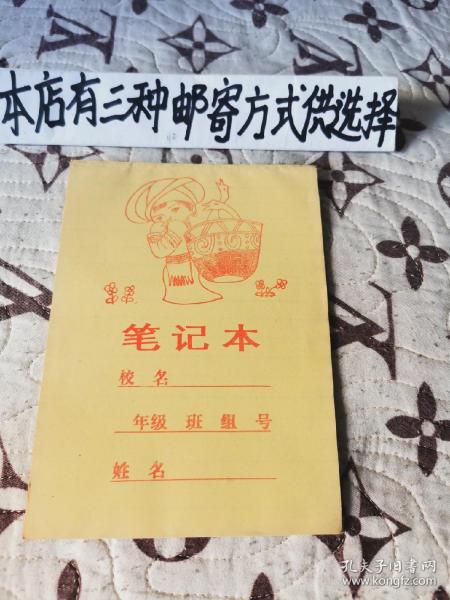 本店有三种邮寄方式供选择
笔记本
校名
年级 班 组 号
姓名
孔夫子旧书网
www.kongfz.com